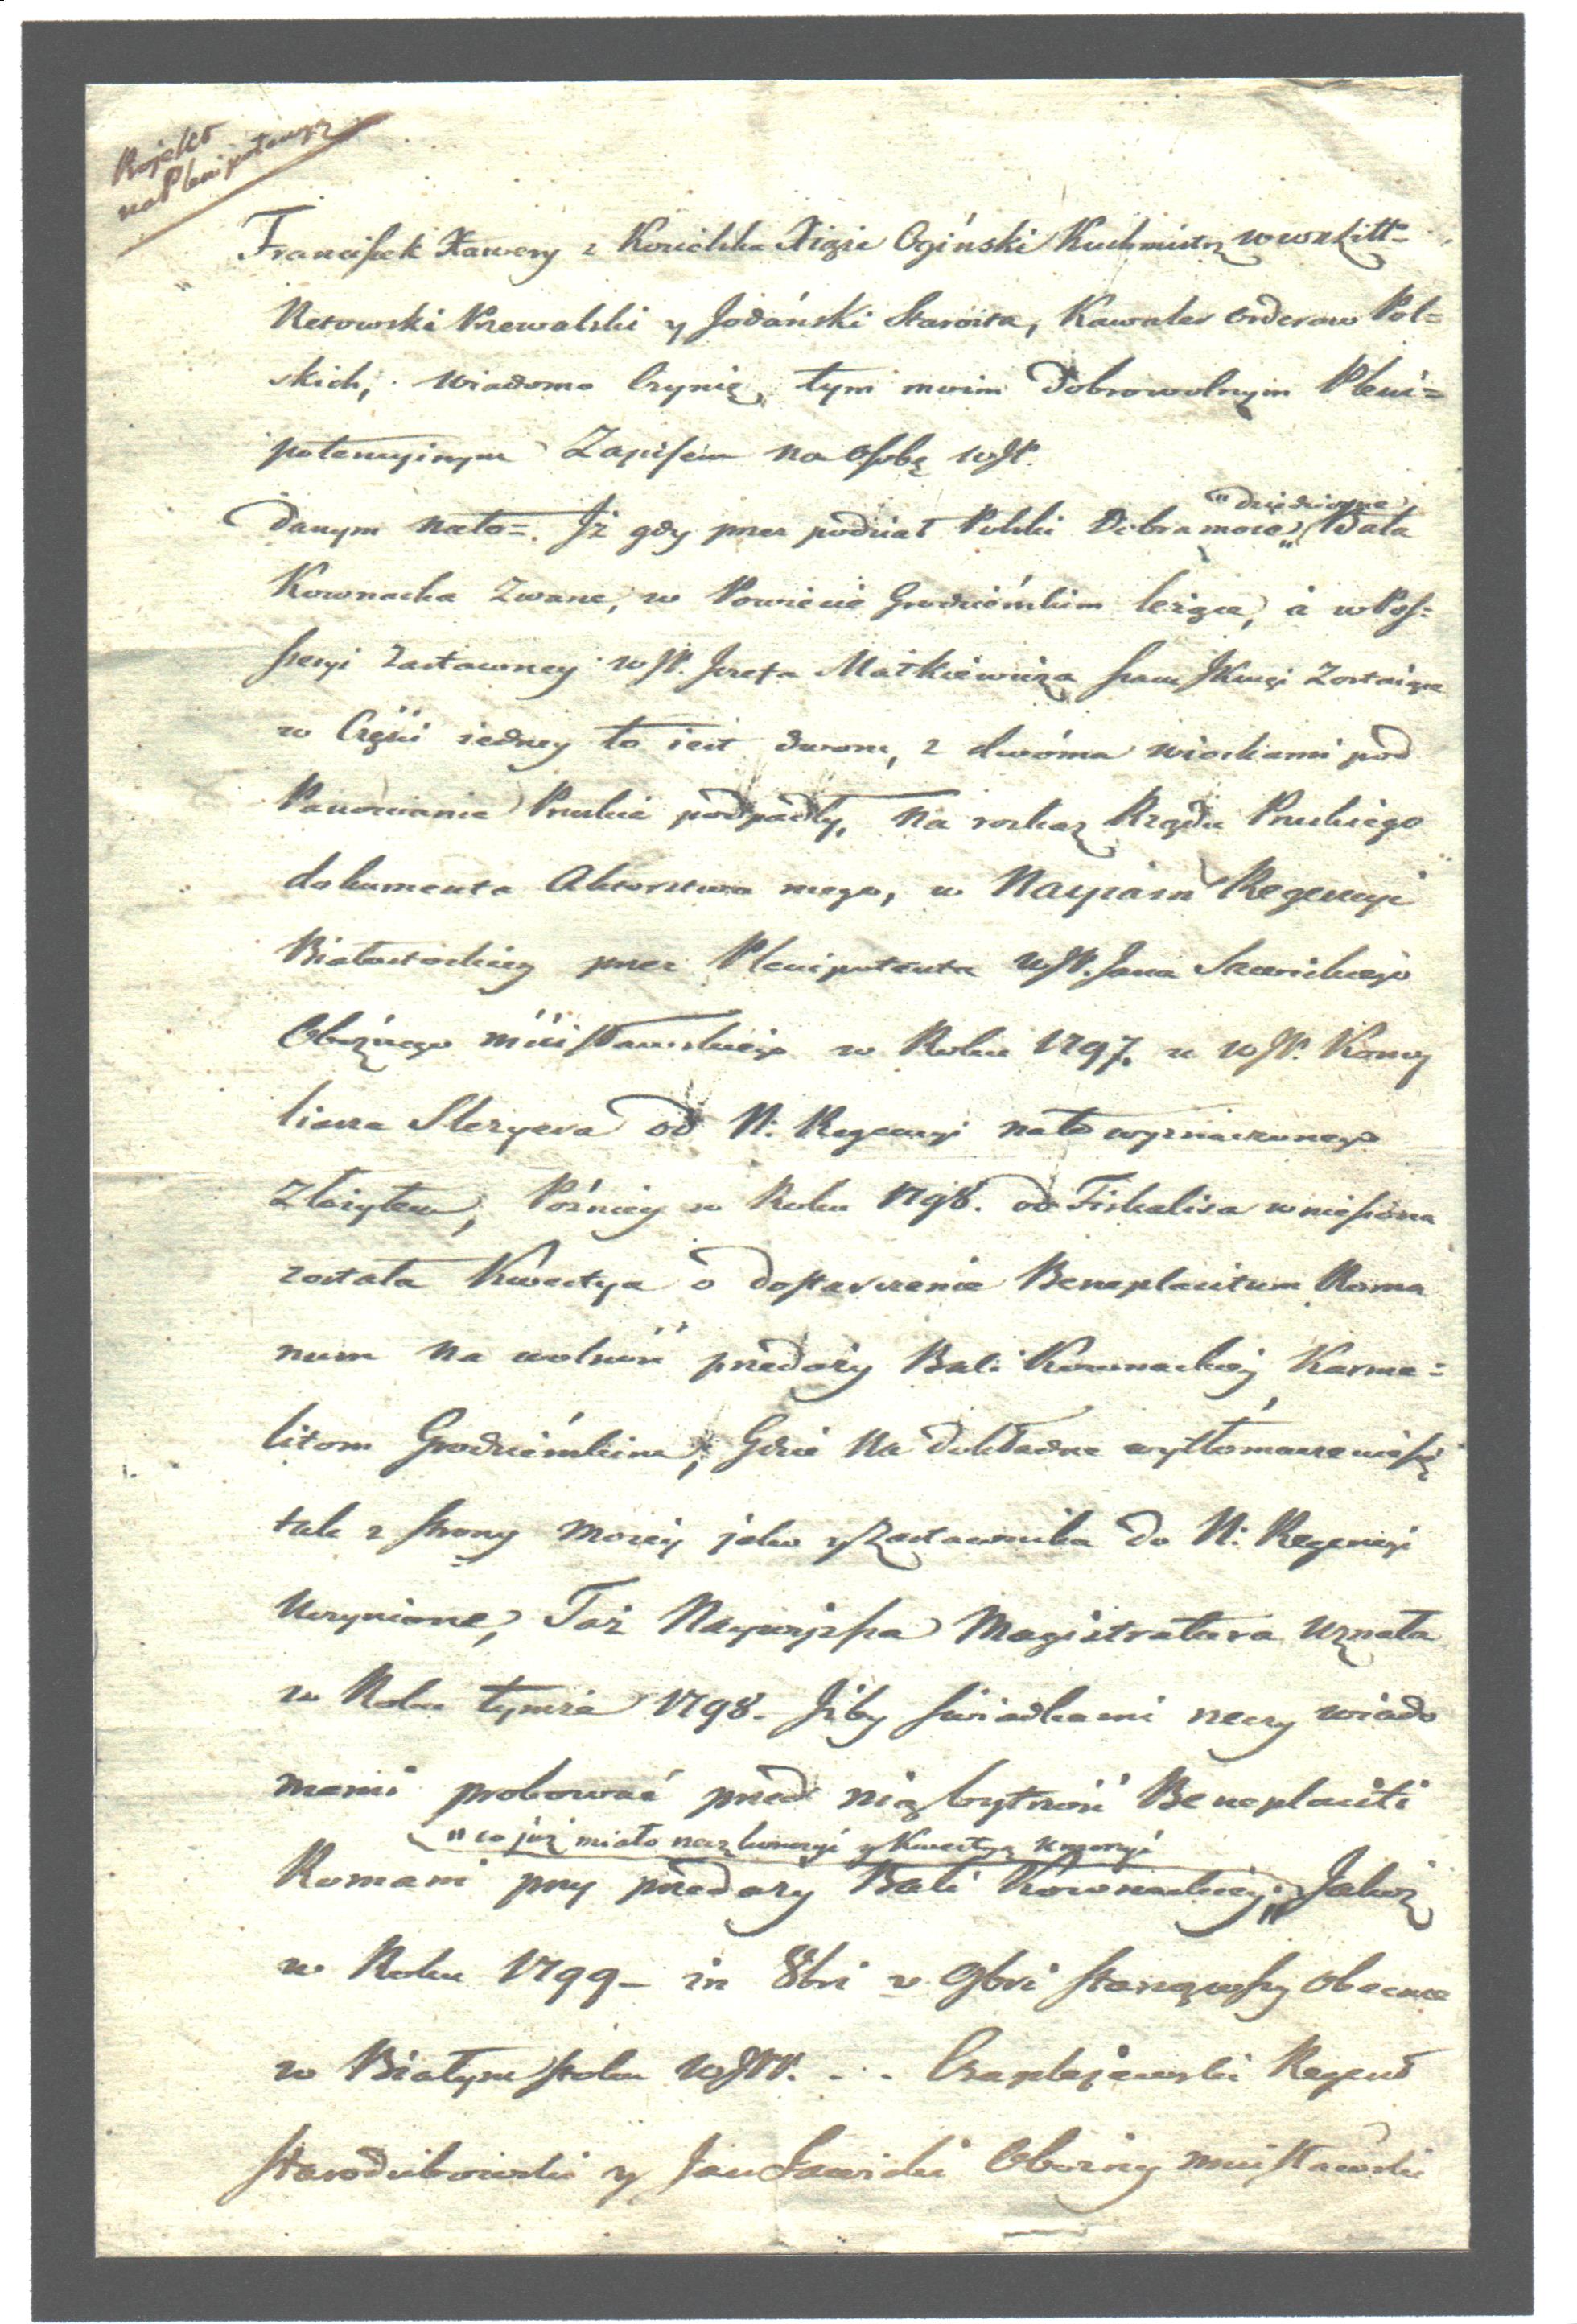 Projekt
na Plenipotencyą
Franciszek Xawery z Kozielska Xiąże Ogiński Kuchmistrz w W. X. Litt=
Retowski Przewalski y Jodański Starosta, Kawaler Orderow Pol=
skich, Wiadomo Czynię, tym moim dobrowolnym Pleni=
potencyinym Zapisem na Osobę WJP.
"dziedziczne
danym na to=. Iż gdy przez podział Polski Dobra moie, Bala
Kownacka Zwane, w Powiecie Grodzieńskim leżące, a w Pos=
sessyi Zastawney WJP. Jozefa Matkiewicza Zostaiące
w Częsci iedney to iest dwom, z dwóma wioskami pod
Panowanie Pruskie podpadły, Na roskaz Rządu Pruskiego
dokumenta Aktorstwa mego, w Nayiasn Regencyi
Białostockiey przez Plenipotenta WJP. Jana Sawickiego
Oboźnego mścisławskiego w Roku 1797. u WJP. Konsy
liarza od N: Regencyi na to wyznaczonego
Złożyłem, Poźniey w Roku 1798. od Fiskalisa wniesiona
została Kwestya o dostawienie Beneplacitum Roma
num na wolność przedaży Bali Kownackiey Karme=
litom Grodzieńskim; Gdzie Na dokładne wytłomaczenie się
tak z strony moiey jako y Zastawnika do N: Regencyi
Uczynione, Taż Naywyższa Magistratura Uznała
w Roku tymże 1798. Iżby swiadkami rzeczy wiado
memi probować przed nią bytność Beneplaciti
"co już miało y Kwestyą umorzyć
Romani przy przedaży Bali Kownackiey;" Jakoż
w Roku 1799 in 8bri v 9bri stanąwszy Obecnie
w Białymstoku WJPP. . . Czaplejewski Regent
Starodubowski y Jan Sawicki Oboźny mścisławski